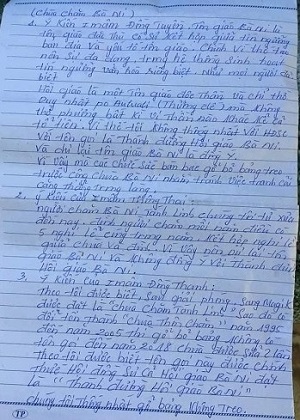 (chùa chăm Bà Ni)
1. Ý kiến Imam Đồng Tuyên. Tôn giáo Bà Ni là
tôn giáo đã có sự kết hợp giữa tín ngưỡng
bản địa và yếu tố tôn giáo. Chính vì thế tạo
nên sự đa dạng, trong hệ thống sinh hoạt
tín ngưỡng văn hóa riêng biệt. Như mọi người đã
biết
Hồi giáo là một tôn giáo độc thần và chỉ thờ
duy nhất (Thượng đế) mà không
thờ phượng bất kì vị thần nào khác kể cả
tổ tiên. Vì thế tôi không thống nhất với HĐSC
với tên gọi là Thánh đường Hồi giáo Bà Ni
và chỉ lấy tôn giáo Bà Ni là đồng ý.
Vì vậy mà các chức sắc bàn bạc gỡ bỏ bảng treo
trước cổng chùa Bà Ni nhằm tránh việc tranh cãi
căng thẳng trong làng.
2. Ý kiến của Imam Thông Thái:
người chăm Bà Ni Tánh Linh chúng tôi từ xưa
đến nay, đời người chăm mỗi năm điều có
5 nghi lễ cúng trong năm. Kết hợp nghi lễ
giữa chùa và đình. Vì vậy nên tôn
giáo Bà Ni và không đồng ý với Thánh đường
Hồi giáo Bà Ni.
3. Ý kiến của Imam Đồng Thanh:
Theo tôi được biết sau giải phóng,
được đặt là chùa chăm Tánh Linh. Sau đó có
đổi tên thành "Chùa Thôn Chăm" năm 1995
đến năm 2005 thì gỡ bỏ bảng không có
tên gọi đến năm 2018 chùa được sửa 2 lần
Theo tôi được biết tên gọi nay được chính
thức Hội đồng Sư cả Hồi giáo Bà Ni đặt
là "Thánh đường Hồi giáo Bà Ni"
Chúng tôi thống nhất gỡ bảng đang treo.
TP